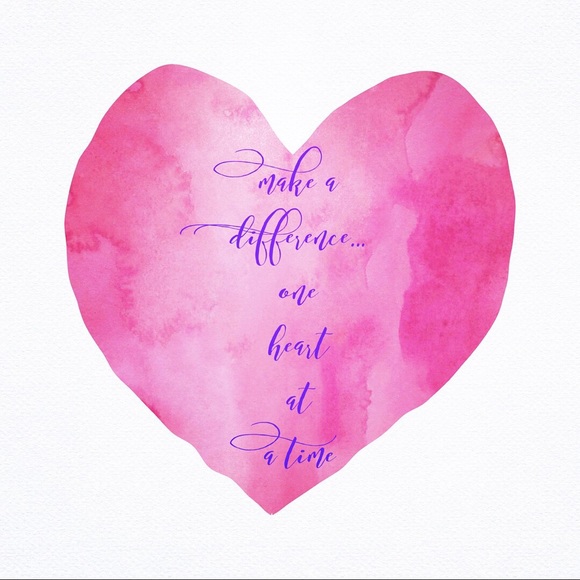 make a
difference...
one
heart
at
a time